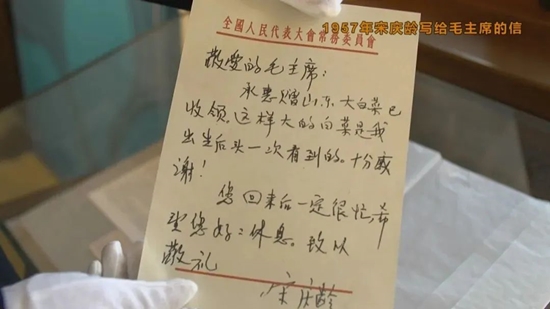 1957年宋庆龄写给毛主席的信
全國人民代表大會常務委員會
敬爱的毛主席:
承惠赠山东大白菜已
收领。这样大的白菜是我
出生后头一次看到的。十分感
谢!
您回来后一定很忙,希
望您好:休息。致以
敬礼
宋庆龄